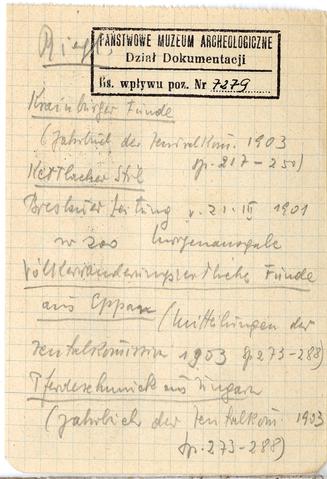 Riegl
PAŃSTWOWE MUZEUM ARCHEOLOGICZNE
Dział Dokumentacji
Ks. wpływu poz. Nr 7279
Krainburger Funde
(Jahrbuch der Zentralkom. 1903
sp. 217-250)
Kettlacher Stil
Breslauer Zeitung v. 21.III 1901
nr 200 Morgenausgabe
Völkerwanderungszeitliche Funde
aus Eppan (Mitteilungen der
Zentalkomission 1903 sp 273-288)
Pferdeschmuck aus Ungarn
(Jahrbuch der Zentalkom. 1903
sp. 273-288)